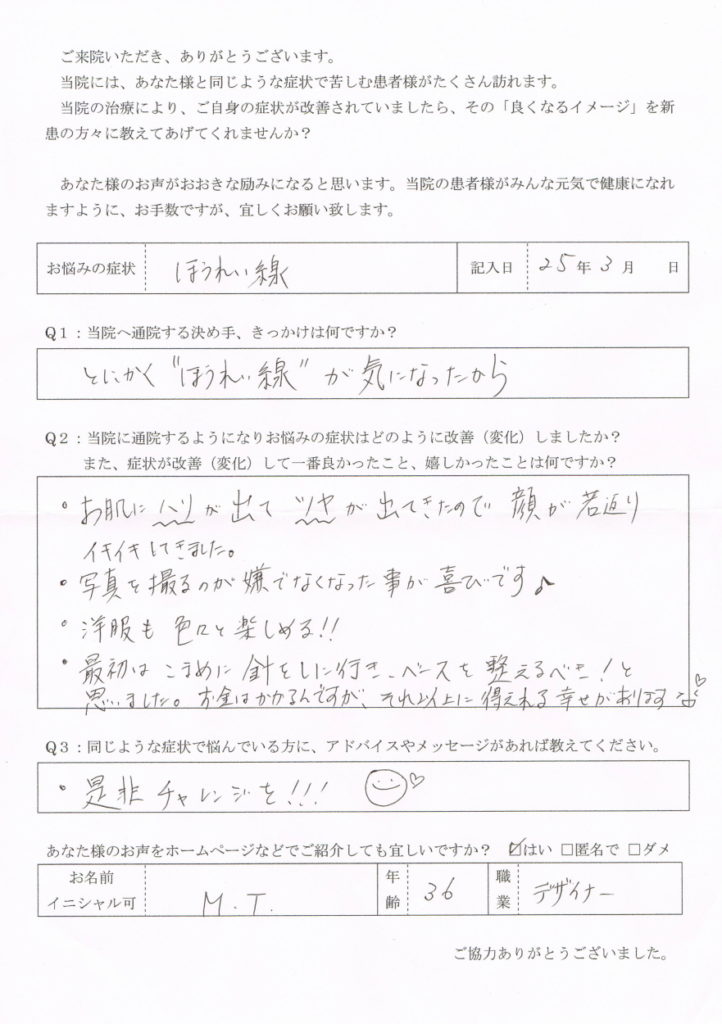 ご来院いただき、ありがとうございます。
当院には、あなた様と同じような症状で苦しむ患者様がたくさん訪れます。
当院の治療により、ご自身の症状が改善されていましたら、その「良くなるイメージ」を新
患の方々に教えてあげてくれませんか？
あなた様のお声がおおきな励みになると思います。当院の患者様がみんな元気で健康になれ
ますように、お手数ですが、宜しくお願い致します。
お悩みの症状 ほうれい線 記入日 25年3月 日
Q1：当院へ通院する決め手、きっかけは何ですか？
とにかく"ほうれい線"が気になったから
Q2：当院に通院するようになりお悩みの症状はどのように改善（変化）しましたか？
また、症状が改善（変化）して一番良かったこと、嬉しかったことは何ですか？
・お肌にハリが出てツヤが出てきたので顔が若返り
イキイキしてきました。
・写真を撮るのが嫌でなくなった事が喜びです♪
・洋服も色々と楽しめる!!
・最初はこまめに針をしに行き、ベースを整えるべき！と
思いました。お金はかかるんですが、それ以上に得えれる幸せがあります♡
Q3：同じような症状で悩んでいる方に、アドバイスやメッセージがあれば教えてください。
・是非チャレンジを!!! ♡
あなた様のお声をホームページなどでご紹介しても宜しいですか？ ☑はい □匿名で □ダメ
お名前
イニシャル可 M.T. 年齢 36 職業 デザイナー
ご協力ありがとうございました。